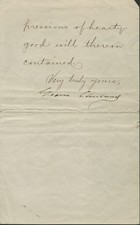 pressions of hearty
good will therein
contained.
Very truly yours,